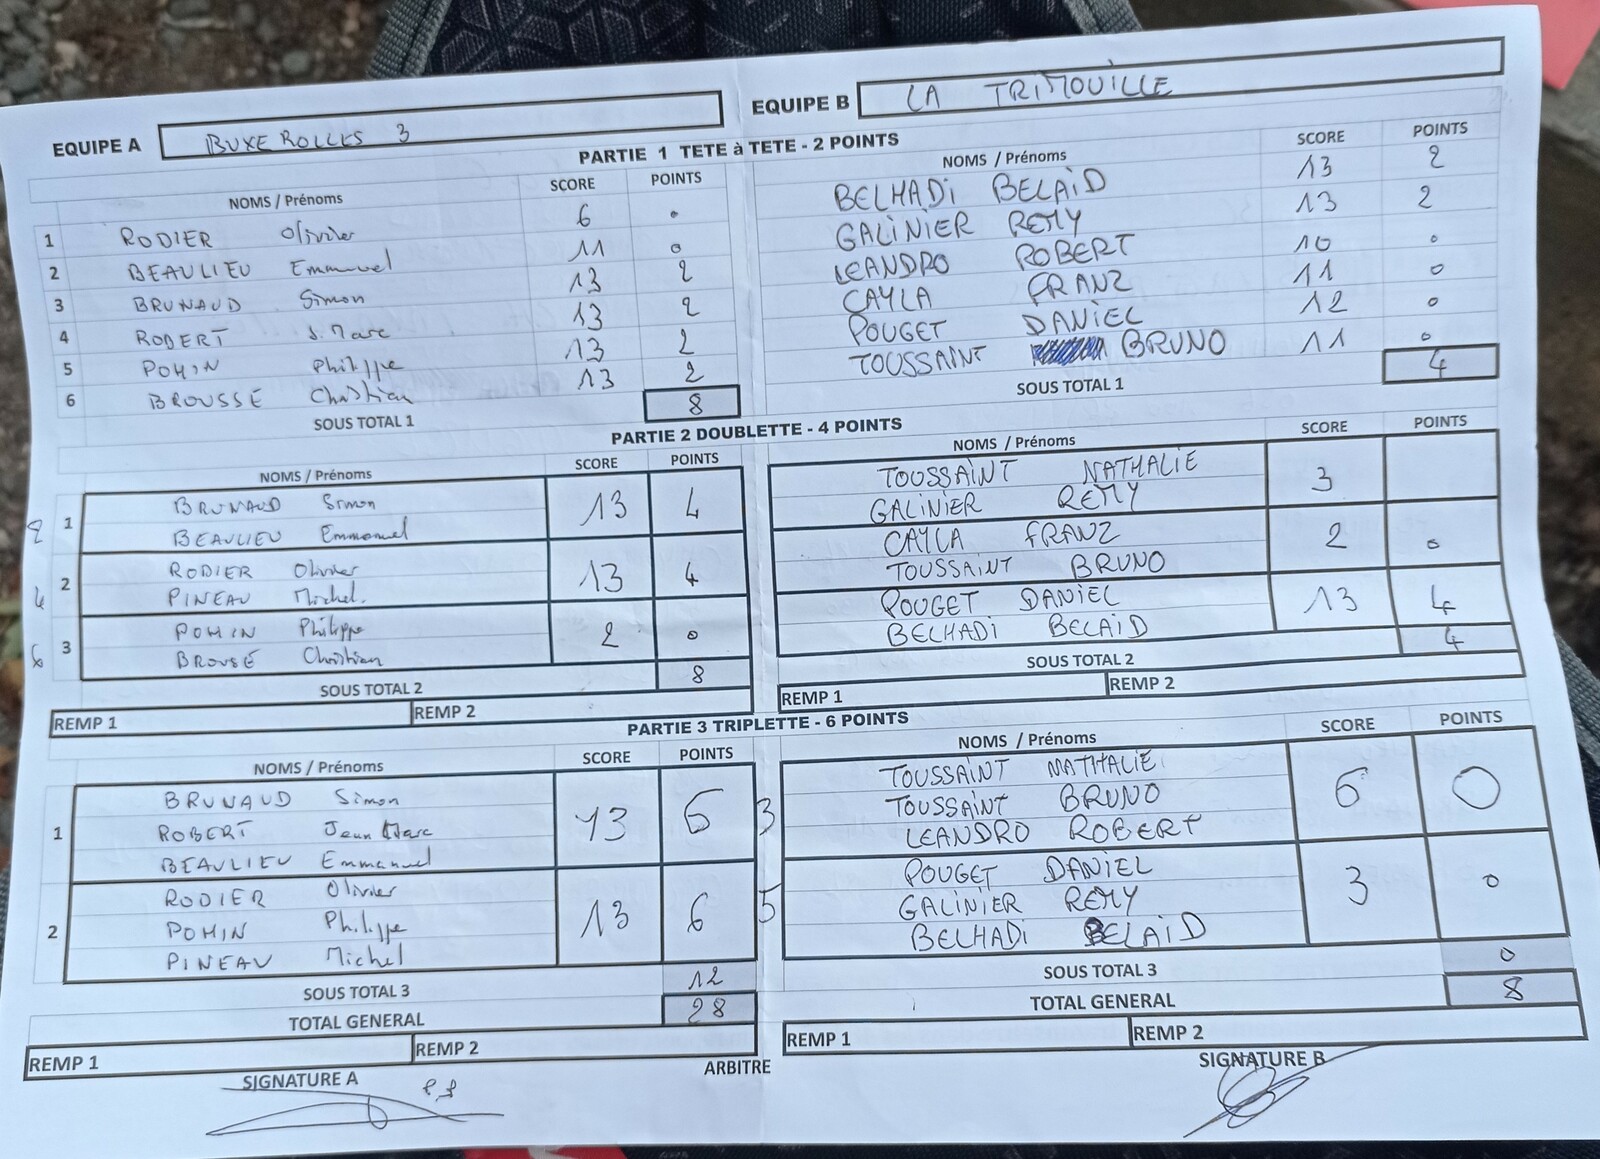 EQUIPE A BUXEROLLES 3
EQUIPE B LA TRIMOUILLE
PARTIE 1 TETE à TETE - 2 POINTS
NOMS / Prénoms SCORE POINTS
NOMS / Prénoms SCORE POINTS
1 RODIER Olivier 6 0
BELHADI BELAID 13 2
2 BEAULIEU Emmanuel 11 0
GALINIER REMY 13 2
3 BRUNAUD Simon 13 2
LEANDRO ROBERT 10 0
4 ROBERT J. Marc 13 2
CAYLA FRANZ 11 0
5 POHIN Philippe 13 2
POUGET DANIEL 12 0
6 BROUSSE Christian 13 2
TOUSSAINT BRUNO 11 0
SOUS TOTAL 1 8
SOUS TOTAL 1 4
PARTIE 2 DOUBLETTE - 4 POINTS
NOMS / Prénoms SCORE POINTS
NOMS / Prénoms SCORE POINTS
2 1 BRUNAUD Simon 13 4
BEAULIEU Emmanuel
TOUSSAINT NATHALIE 3
GALINIER REMY
4 2 RODIER Olivier 13 4
PINEAU Michel.
CAYLA FRANZ 2 0
TOUSSAINT BRUNO
6 3 POHIN Philippe 2 0
BROUSÉ Christian
POUGET DANIEL 13 4
BELHADI BELAID
SOUS TOTAL 2 8
SOUS TOTAL 2 4
REMP 1 REMP 2
REMP 1 REMP 2
PARTIE 3 TRIPLETTE - 6 POINTS
NOMS / Prénoms SCORE POINTS
NOMS / Prénoms SCORE POINTS
1 BRUNAUD Simon 13 6
ROBERT Jean Marc
BEAULIEU Emmanuel
3 TOUSSAINT NATHALIE 6 0
TOUSSAINT BRUNO
LEANDRO ROBERT
2 RODIER Olivier 13 6
POHIN Philippe
PINEAU Michel
5 POUGET DANIEL 3 0
GALINIER REMY
BELHADI BELAID
SOUS TOTAL 3 12
SOUS TOTAL 3 0
TOTAL GENERAL 28
TOTAL GENERAL 8
REMP 1 REMP 2
REMP 1 REMP 2
SIGNATURE A
ARBITRE
SIGNATURE B